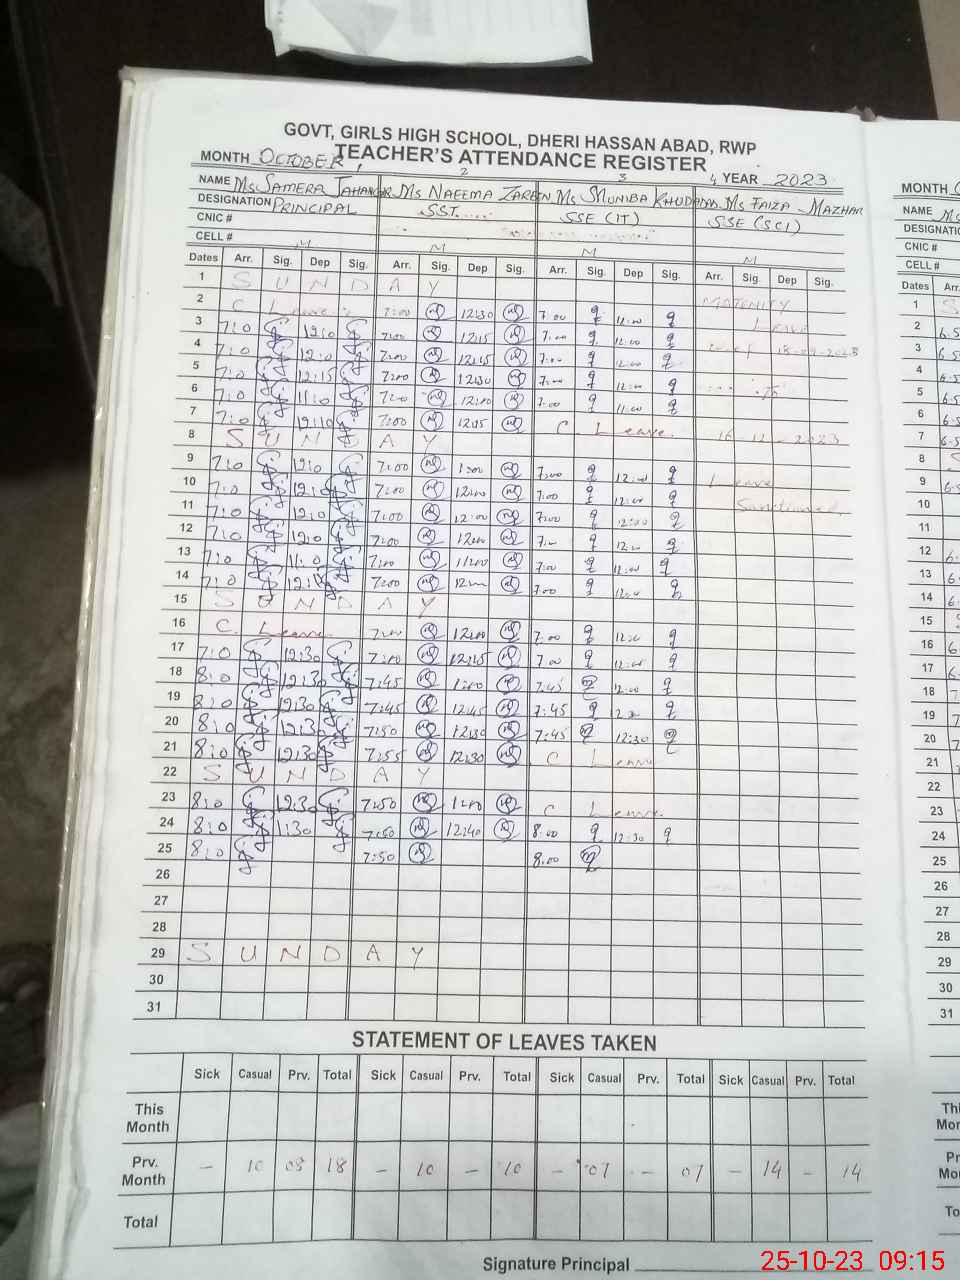 GOVT, GIRLS HIGH SCHOOL, DHERI HASSAN ABAD, RWP
MONTH OCTOBER, TEACHER'S ATTENDANCE REGISTER
2 3 4 YEAR 2023
NAME Ms SAMERA JAHANGIR Ms NAEEMA ZAREEN Ms MUNIBA KHUDADAD Ms FAIZA MAZHAR
DESIGNATION PRINCIPAL SST SSE (IT) SSE (SCI)
CNIC #
CELL #
M M M M
Dates Arr. Sig. Dep Sig. Arr. Sig. Dep Sig. Arr. Sig. Dep Sig. Arr. Sig. Dep Sig.
1 S U N D A Y
2 C. Leave. 7:00 12:30 7:00 12:00 MATERNITY
3 7:0 12:0 7:00 12:15 7:00 12:00 Leave
4 7:0 12:0 7:00 12:45 7:00 12:00 18-09-2023
5 7:0 12:15 7:00 12:30 7:00 12:00
6 7:0 11:0 7:00 12:00 7:00 11:00 To
7 7:0 12:10 7:00 12:15 C Leave. 16-12-2023
8 S U N D A Y
9 7:0 12:0 7:00 1:00 7:00 12:00 Leave
10 7:0 12:0 7:00 12:00 7:00 12:00 Sanctioned.
11 7:0 12:0 7:00 12:00 7:00 12:00
12 7:0 12:0 7:00 12:00 7:00 12:00
13 7:0 11:0 7:00 11:00 7:00 12:00
14 7:0 12:15 7:00 12:00 7:00 12:00
15 S U N D A Y
16 C. Leave 7:00 12:00 7:00 12:00
17 7:0 12:30 7:00 12:45 7:00 12:00
18 8:0 12:30 7:45 1:00 7:45 12:00
19 8:0 12:30 7:45 12:45 7:45 12:30
20 8:0 12:30 7:50 12:30 7:45 12:30
21 8:0 12:30 7:55 12:30 C Leave
22 S U N D A Y
23 8:0 12:30 7:50 1:00 C Leave.
24 8:0 1:30 7:50 12:40 8:00 12:30
25 8:0 7:50 8:00
26
27
28
29 S U N D A Y
30
31
STATEMENT OF LEAVES TAKEN
Sick Casual Prv. Total Sick Casual Prv. Total Sick Casual Prv. Total Sick Casual Prv. Total
This Month
Prv. Month - 10 08 18 - 10 - 10 - 07 - 07 - 14 - 14
Total
Signature Principal
MONTH
NAME Ms
DESIGNATIO
CNIC #
CELL #
Dates Arr.
1 S
2 6:5
3 6:5
4 6:5
5 6:5
6 6:5
7 6:5
8 S
9 6:5
10
11
12 6
13 6
14 6
15
16 6
17 6
18 7
19 7
20 7
21 7
22
23
24
25
26
27
28
29
30
31
Thi
Mor
Pr
Mo
To
25-10-23 09:15